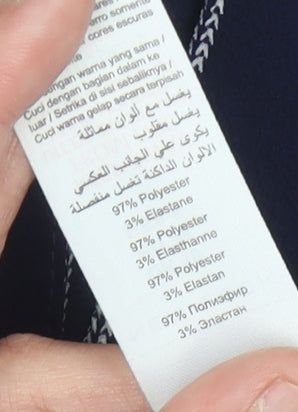 ores
rro somente
cores escuras
ngan warna yang sama /
Cuci dengan bagian dalam ke
luar / Setrika di sisi sebaliknya /
Cuci warna gelap secara terpisah
يغسل مع ألوان مماثلة
يغسل مقلوب
يكوى على الجانب العكسي
الألوان الداكنة تغسل منفصلة
97% Polyester
3% Elastane
97% Polyester
3% Elasthanne
97% Polyester
3% Elastan
97% Полиэфир
3% Эластан